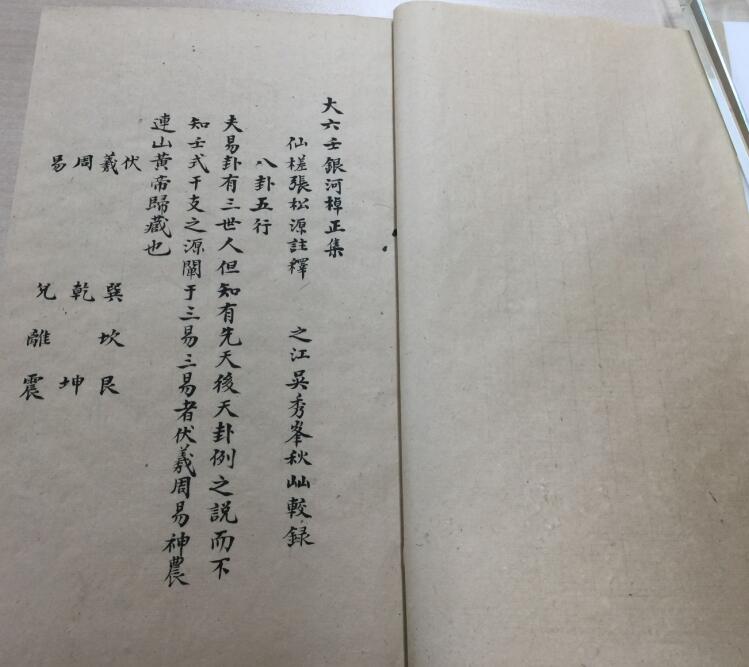 大六壬銀河棹正集
仙槎張松源註釋　之江吳秀峯秋山較録
八卦五行
夫易卦有三世人但知有先天後天卦例之説而不
知壬式干支之源闡于三易三易者伏羲周易神農
連山黄帝歸藏也
伏羲周易
巽乾兌
坎離
艮坤震